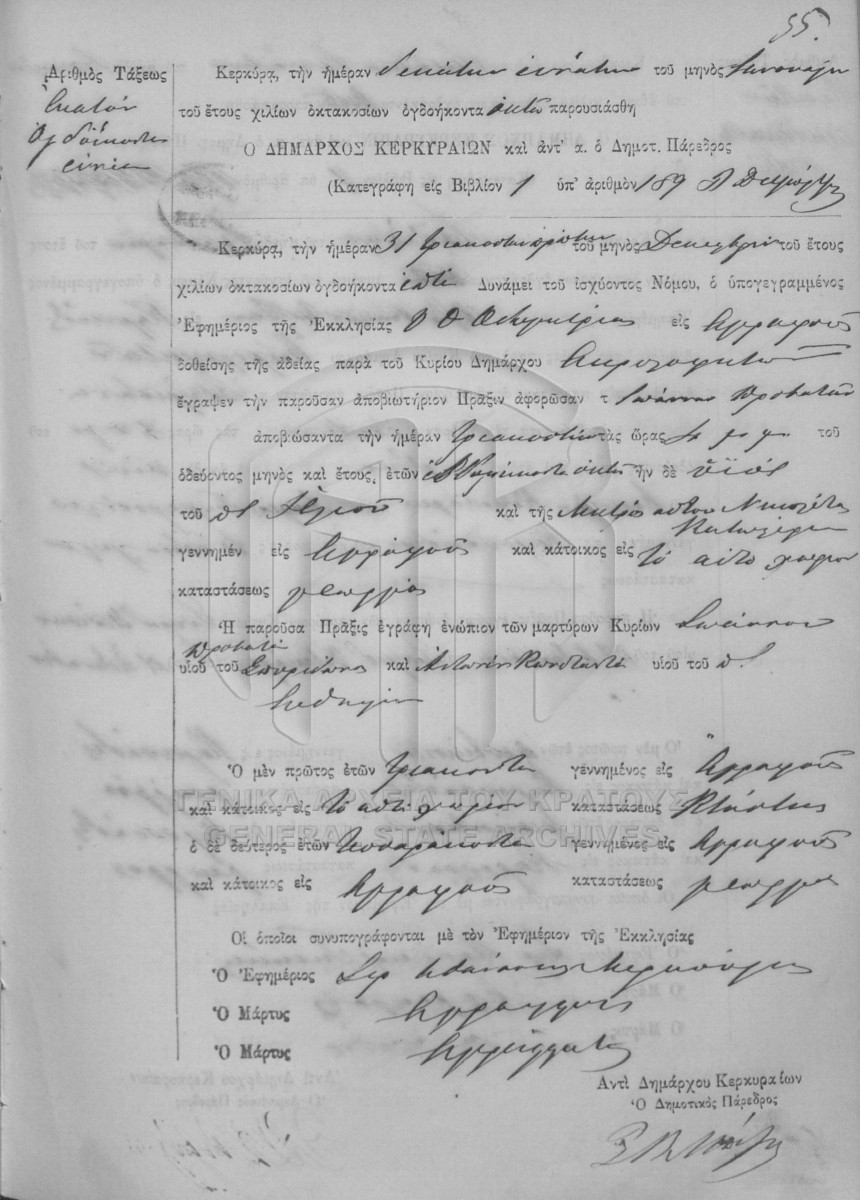 55.
Ἀριθμὸς Τάξεως
Ἑκατόν
ὀγδοήκοντα
ἐννέα
Κερκύρα, τὴν ἡμέραν δεκάτην ἐνάτην τοῦ μηνὸς Ἰανουαρίου
τοῦ ἔτους χιλίων ὀκτακοσίων ὀγδοήκοντα ὀκτὼ παρουσιάσθη
Ο ΔΗΜΑΡΧΟΣ ΚΕΡΚΥΡΑΙΩΝ καὶ ἀντ' α. ὁ Δημοτ. Πάρεδρος
(Κατεγράφη εἰς Βιβλίον 1 ὑπ' ἀριθμὸν 189
Κερκύρα, τὴν ἡμέραν 31 τριακοστὴν πρώτην τοῦ μηνὸς Δεκεμβρίου τοῦ ἔτους
χιλίων ὀκτακοσίων ὀγδοήκοντα ἑπτὰ Δυνάμει τοῦ ἰσχύοντος Νόμου, ὁ ὑπογεγραμμένος
Ἐφημέριος τῆς Ἐκκλησίας Υ Θ Ὁδηγητρίας εἰς Ἀγραφοὺς
δοθείσης τῆς ἀδείας παρὰ τοῦ Κυρίου Δημάρχου
ἔγραψεν τὴν παροῦσαν ἀποβιωτήριον Πρᾶξιν ἀφορῶσαν τ Ἰωάννην Προβατᾶν
ἀποβιώσαντα τὴν ἡμέραν τριακοστὴν τὰς ὥρας μ μ τοῦ
ὁδεύοντος μηνὸς καὶ ἔτους, ἐτῶν ἑβδομήκοντα ὀκτὼ ἦν δὲ υἱὸς
τοῦ καὶ τῆς Μητρὸς αὐτοῦ Νικολέτας
γεννημέν εἰς Ἀγραφοὺς καὶ κάτοικος εἰς τὸ αὐτὸ χωρίον
καταστάσεως γεωργός
Ἡ παροῦσα Πρᾶξις ἐγράφη ἐνώπιον τῶν μαρτύρων Κυρίων Ἰωάννου
Προβατᾶ
υἱοῦ τοῦ Σπυρίδωνος καὶ Ἀντωνίου υἱοῦ τοῦ
Ὁ μὲν πρῶτος ἐτῶν τριάκοντα γεννημένος εἰς Ἀγραφοὺς
καὶ κάτοικος εἰς τὸ αὐτὸ χωρίον καταστάσεως Κτίστης
ὁ δὲ δεύτερος ἐτῶν τεσσαράκοντα γεννημένος εἰς Ἀγραφοὺς
καὶ κάτοικος εἰς Ἀγραφοὺς καταστάσεως γεωργός
Οἱ ὁποῖοι συνυπογράφονται μὲ τὸν Ἐφημέριον τῆς Ἐκκλησίας
Ὁ Ἐφημέριος
Ὁ Μάρτυς ἀγράμματος
Ὁ Μάρτυς ἀγράμματος
Ἀντὶ Δημάρχου Κερκυραίων
Ὁ Δημοτικὸς Πάρεδρος
ΓΕΝΙΚΑ ΑΡΧΕΙΑ ΤΟΥ ΚΡΑΤΟΥΣ
GENERAL STATE ARCHIVES